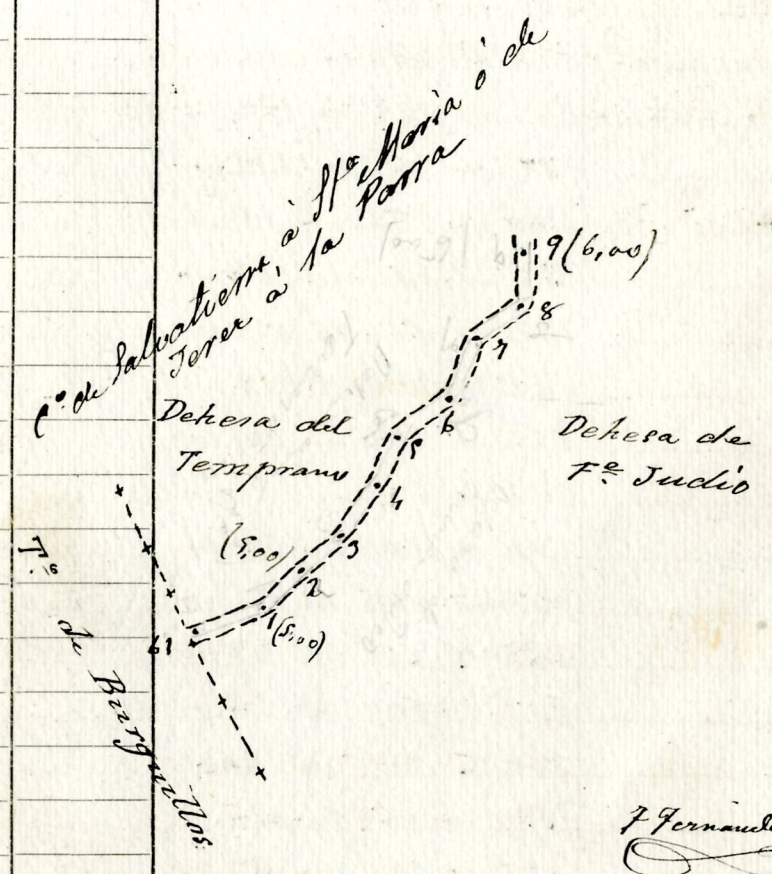 C.º de Salvatierra à Sta Maria ó de
Jerez à la Parra
9 (6,00)
8
7
6
5
4
3
(5,00)
2
1 (5,00)
61
Dehesa del
Temprano
Dehesa de
Fe Judío
T.º
de Burguillos
F Fernande